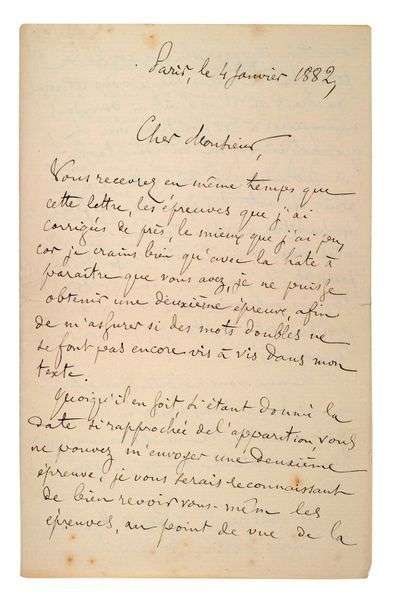 Paris, le 4 Janvier 1882,
Cher Monsieur,
Vous recevrez en même temps que
cette lettre, les épreuves que j'ai
corrigés de près, le mieux que j'ai pu,
car je crains bien qu'avec la hâte à
paraître que vous avez, je ne puisse
obtenir une deuxième épreuve, afin
de m'assurer si des mots doubles ne
se font pas encore vis à vis dans mon
texte.
Quoiqu'il en soit si étant donné la
date si rapprochée de l'apparition, vous
ne pouvez m'envoyer une deuxième
épreuve, je vous serais reconnaissant
de bien revoir vous-même les
épreuves, au point de vue de la